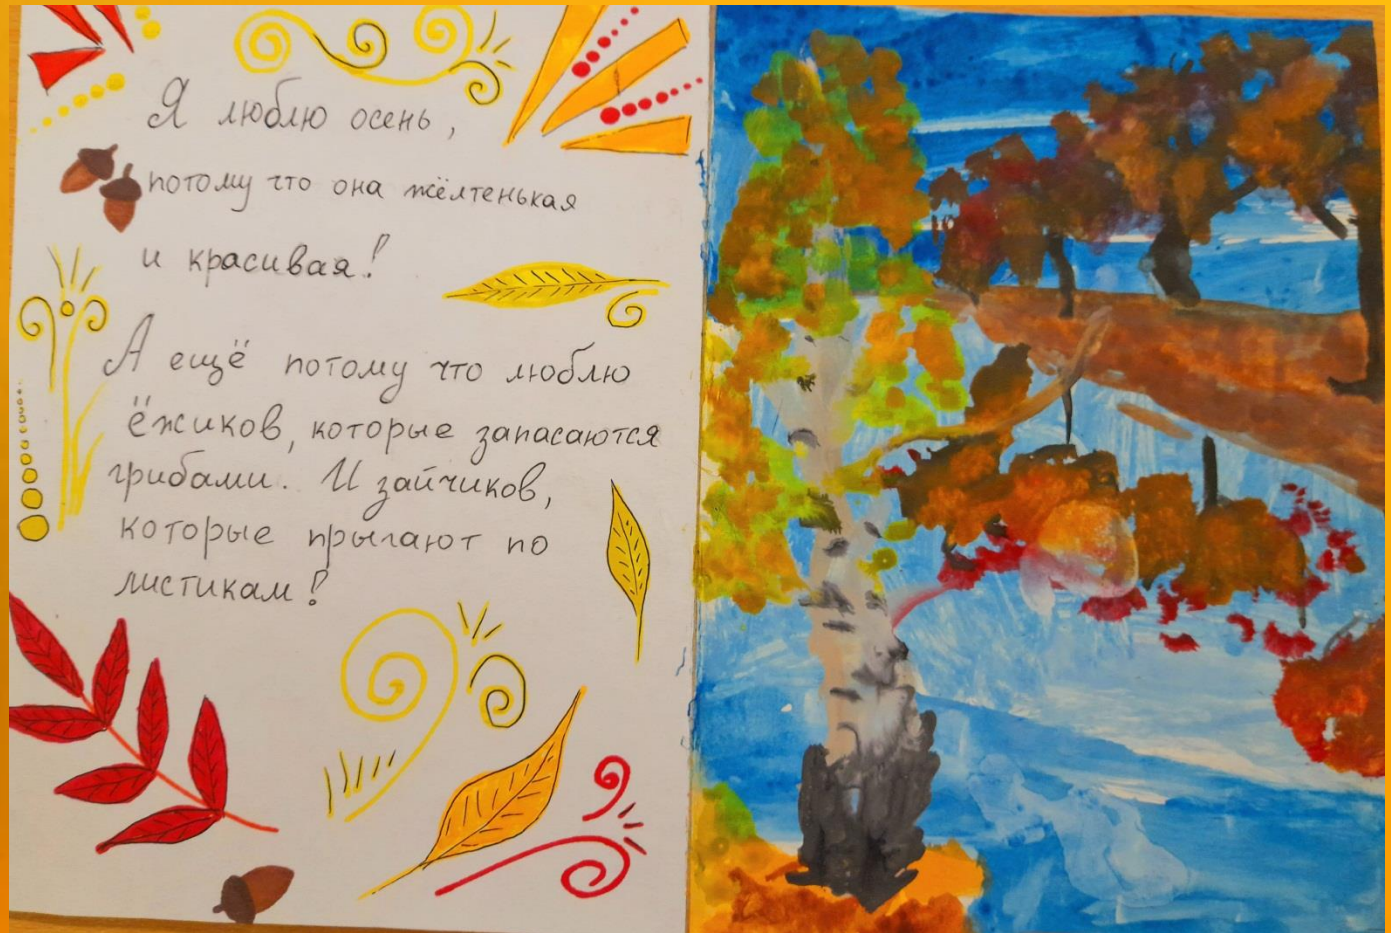 Я люблю осень,
потому что она жёлтенькая
и красивая!
А ещё потому что люблю
ёжиков, которые запасаются
грибами. И зайчиков,
которые прыгают по
листикам!